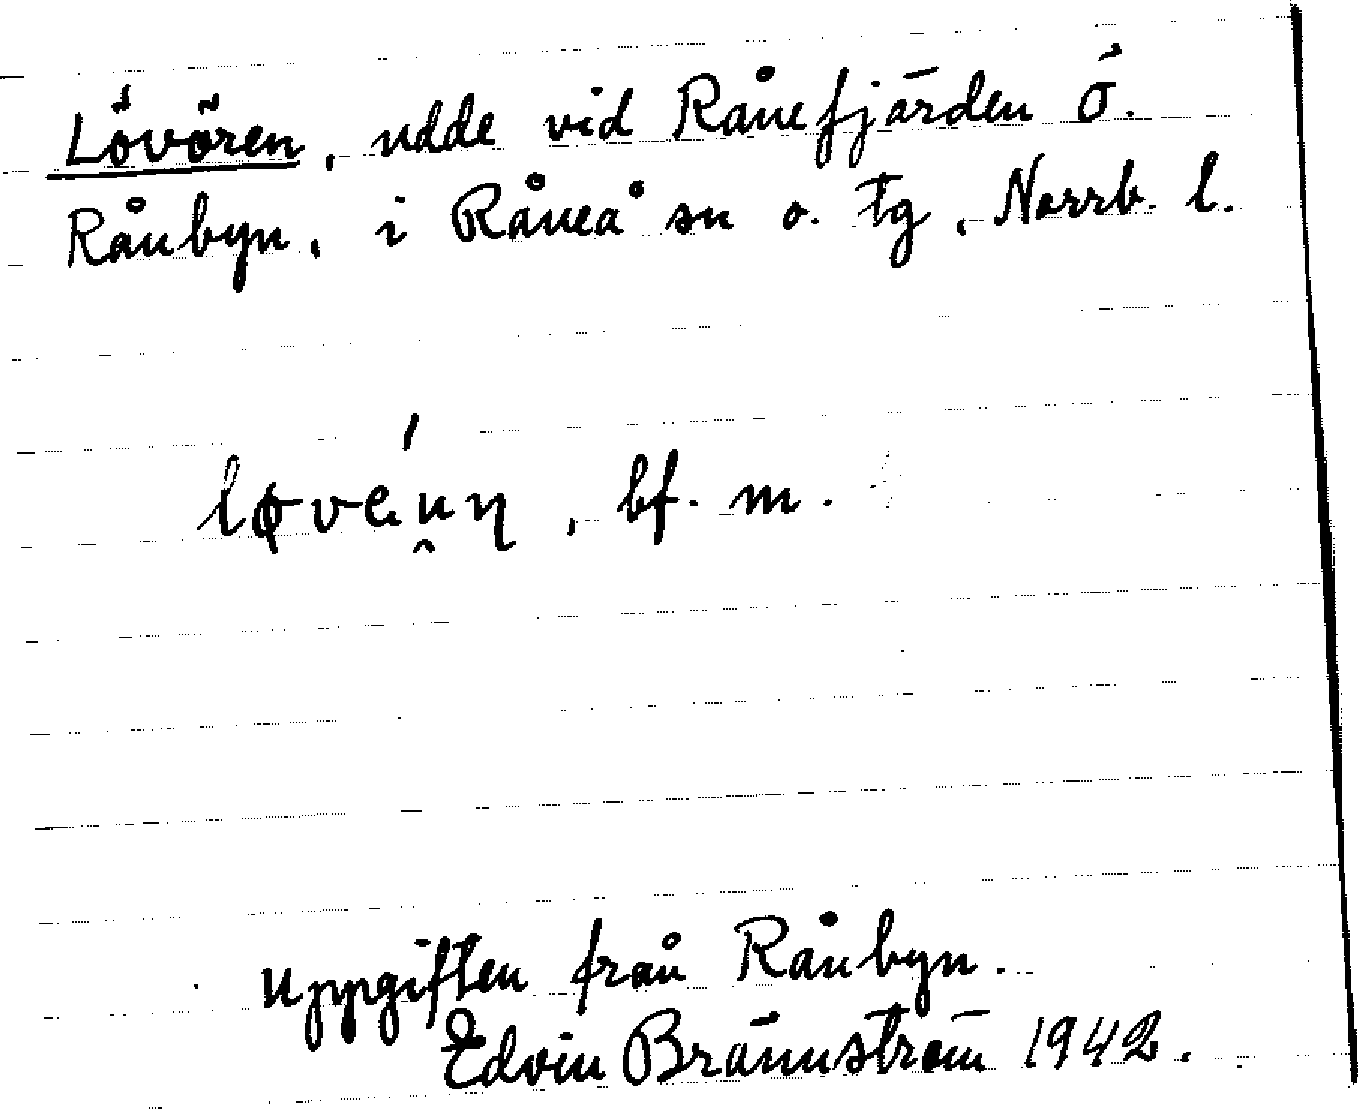 Lövören, udde vid Rånefjärden ö.
Rånbyn, i Råneå sn o. tg, Norrb. l.
, bf. m.
Uppgiften från Rånbyn.
Edvin Brännström 1942.